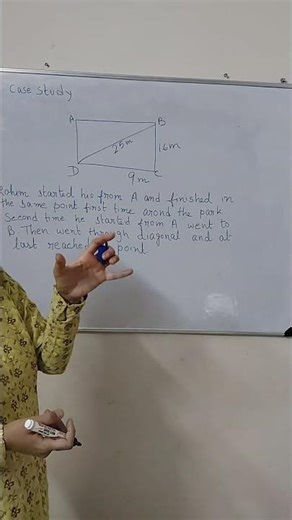 Case study
A
B
25m
16m
D
C
9m
Rohim started his from A and finished in
the same point first time arond the park
Second time he started from A went to
B. Then went through diagonal and at
last reached point